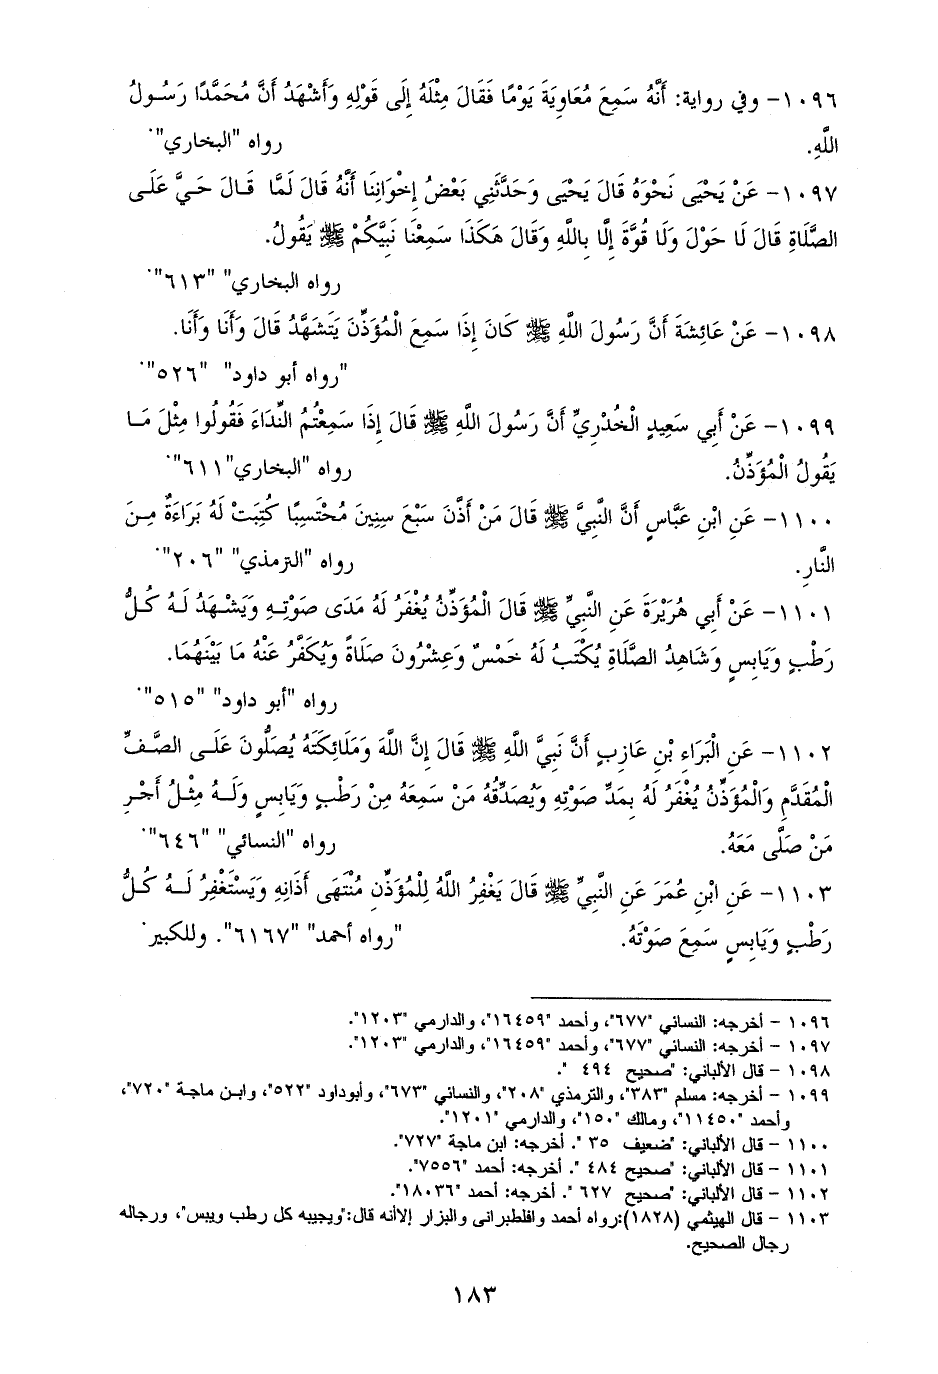 ١٠٩٦- وفي رواية: أَنَّهُ سَمِعَ مُعَاوِيَةَ يَوْمًا فَقَالَ مِثْلَهُ إِلَى قَوْلِهِ وَأَشْهَدُ أَنَّ مُحَمَّدًا رَسُولُ
اللَّهِ. رواه "البخاري".
١٠٩٧- عَنْ يَحْيَى نَحْوَهُ قَالَ يَحْيَى وَحَدَّثَنِي بَعْضُ إِخْوَانِنَا أَنَّهُ قَالَ لَمَّا قَالَ حَيَّ عَلَى
الصَّلَاةِ قَالَ لَا حَوْلَ وَلَا قُوَّةَ إِلَّا بِاللَّهِ وَقَالَ هَكَذَا سَمِعْنَا نَبِيَّكُمْ ﷺ يَقُولُ.
رواه البخاري" "٦١٣".
١٠٩٨- عَنْ عَائِشَةَ أَنَّ رَسُولَ اللَّهِ ﷺ كَانَ إِذَا سَمِعَ الْمُؤَذِّنَ يَتَشَهَّدُ قَالَ وَأَنَا وَأَنَا.
"رواه أبو داود" "٥٢٦".
١٠٩٩- عَنْ أَبِي سَعِيدٍ الْخُدْرِيِّ أَنَّ رَسُولَ اللَّهِ ﷺ قَالَ إِذَا سَمِعْتُمُ النِّدَاءَ فَقُولُوا مِثْلَ مَا
يَقُولُ الْمُؤَذِّنُ. رواه "البخاري"٦١١".
١١٠٠- عَنِ ابْنِ عَبَّاسٍ أَنَّ النَّبِيَّ ﷺ قَالَ مَنْ أَذَّنَ سَبْعَ سِنِينَ مُحْتَسِبًا كُتِبَتْ لَهُ بَرَاءَةٌ مِنَ
النَّارِ. رواه "الترمذي" "٢٠٦".
١١٠١- عَنْ أَبِي هُرَيْرَةَ عَنِ النَّبِيِّ ﷺ قَالَ الْمُؤَذِّنُ يُغْفَرُ لَهُ مَدَى صَوْتِهِ وَيَشْهَدُ لَهُ كُلُّ
رَطْبٍ وَيَابِسٍ وَشَاهِدُ الصَّلَاةِ يُكْتَبُ لَهُ خَمْسٌ وَعِشْرُونَ صَلَاةً وَيُكَفَّرُ عَنْهُ مَا بَيْنَهُمَا.
رواه "أبو داود" "٥١٥".
١١٠٢- عَنِ الْبَرَاءِ بْنِ عَازِبٍ أَنَّ نَبِيَّ اللَّهِ ﷺ قَالَ إِنَّ اللَّهَ وَمَلَائِكَتَهُ يُصَلُّونَ عَلَى الصَّفِّ
الْمُقَدَّمِ وَالْمُؤَذِّنُ يُغْفَرُ لَهُ بِمَدِّ صَوْتِهِ وَيُصَدِّقُهُ مَنْ سَمِعَهُ مِنْ رَطْبٍ وَيَابِسٍ وَلَهُ مِثْلُ أَجْرِ
مَنْ صَلَّى مَعَهُ. رواه "النسائي" "٦٤٦".
١١٠٣- عَنِ ابْنِ عُمَرَ عَنِ النَّبِيِّ ﷺ قَالَ يَغْفِرُ اللَّهُ لِلْمُؤَذِّنِ مُنْتَهَى أَذَانِهِ وَيَسْتَغْفِرُ لَهُ كُلُّ
رَطْبٍ وَيَابِسٍ سَمِعَ صَوْتَهُ. "رواه أحمد" "٦١٦٧". وللكبير.
١٠٩٦ - أخرجه: النسائي "٦٧٧"، وأحمد "١٦٤٥٩"، والدارمي "١٢٠٣".
١٠٩٧ - أخرجه: النسائي "٦٧٧"، وأحمد "١٦٤٥٩"، والدارمي "١٢٠٣".
١٠٩٨ - قال الألباني: "صحيح ٤٩٤ ".
١٠٩٩ - أخرجه: مسلم "٣٨٣"، والترمذي "٢٠٨"، والنسائي "٦٧٣"، وأبوداود "٥٢٢"، وابن ماجة "٧٢٠"،
وأحمد "١١٤٥٠"، ومالك "١٥٠"، والدارمي "١٢٠١".
١١٠٠ - قال الألباني: "ضعيف ٣٥ ". أخرجه: ابن ماجة "٧٢٧".
١١٠١ - قال الألباني: "صحيح ٤٨٤ ". أخرجه: أحمد "٧٥٥٦".
١١٠٢ - قال الألباني: "صحيح ٦٢٧ ". أخرجه: أحمد "١٨٠٣٦".
١١٠٣ - قال الهيثمي (١٨٢٨):رواه أحمد وافلطبرانى والبزار إلاأنه قال:"ويجيبه كل رطب ويبس"، ورجاله
رجال الصحيح.
١٨٣